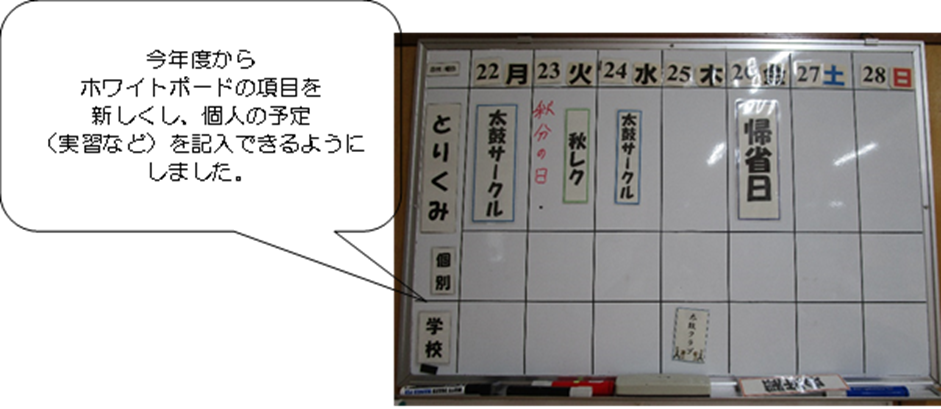 今年度から
ホワイトボードの項目を
新しくし、個人の予定
（実習など）を記入できるように
しました。
22 月 23 火 24 水 25 木 26 金 27 土 28 日
とりくみ
太鼓サークル
秋分の日
秋レク
太鼓サークル
帰省日
個別
学校
太鼓クラブ